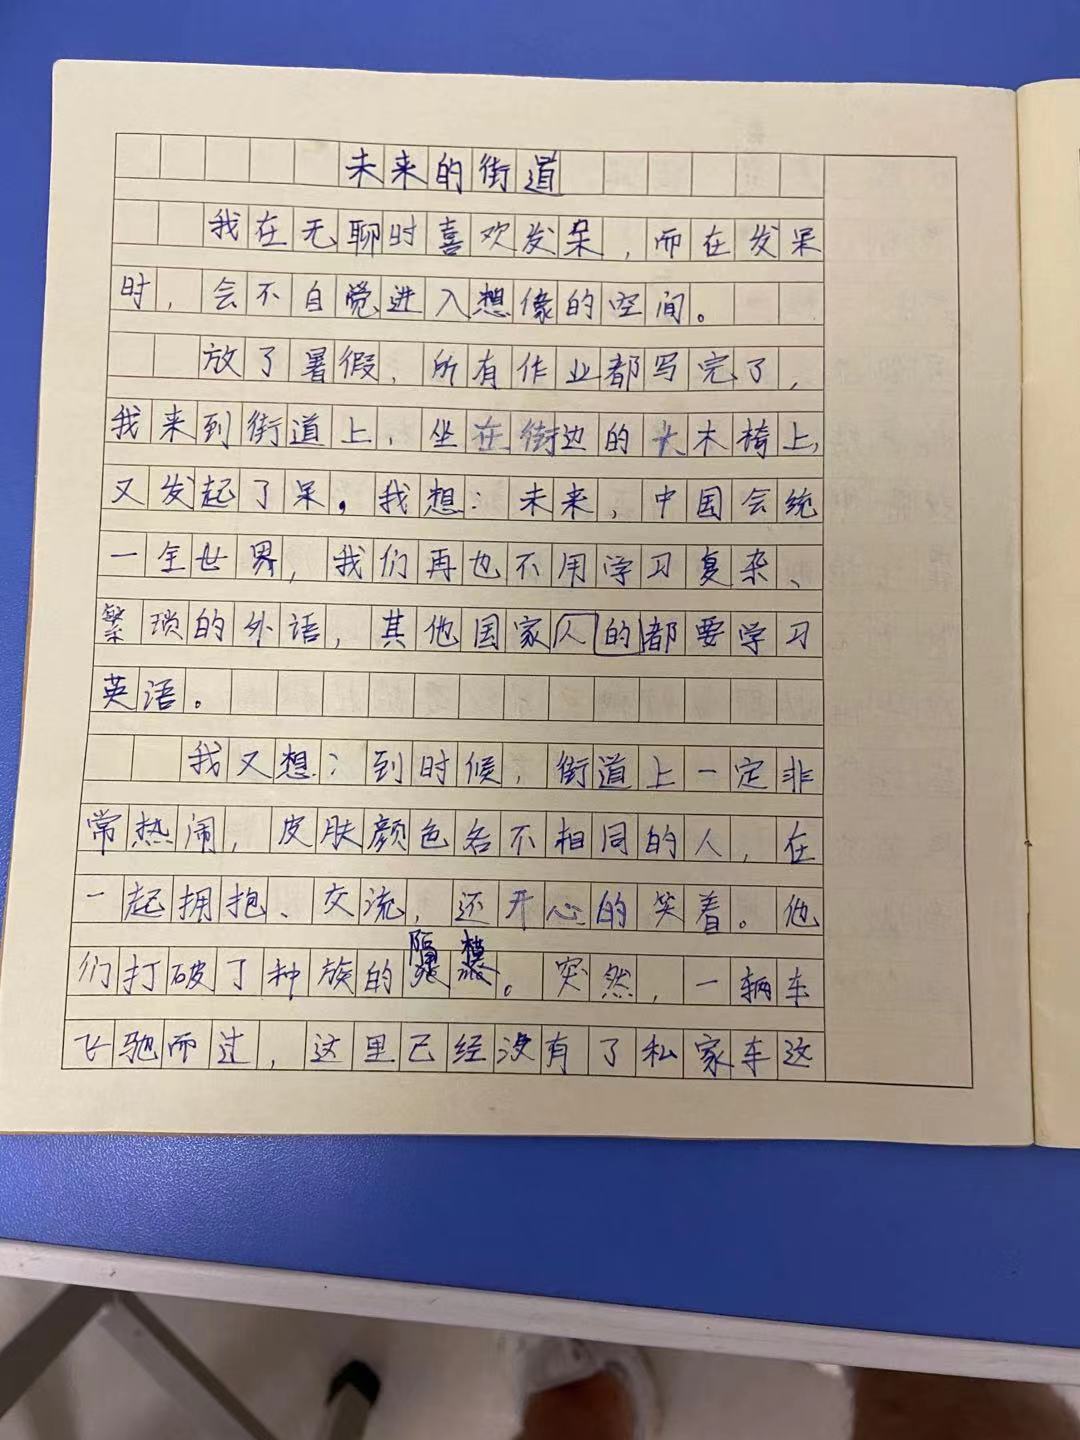 未来的街道
我在无聊时喜欢发呆,而在发呆
时,会不自觉进入想像的空间。
放了暑假,所有作业都写完了,
我来到街道上,坐在街边的长木椅上,
又发起了呆。我想:未来,中国会统
一全世界,我们再也不用学习复杂、
繁琐的外语,其他国家人的都要学习
英语。
我又想:到时候,街道上一定非
常热闹,皮肤颜色各不相同的人,在
一起拥抱、交流,还开心的笑着。他
们打破了种族的隔。突然,一辆车
飞驰而过,这里已经没有了私家车这